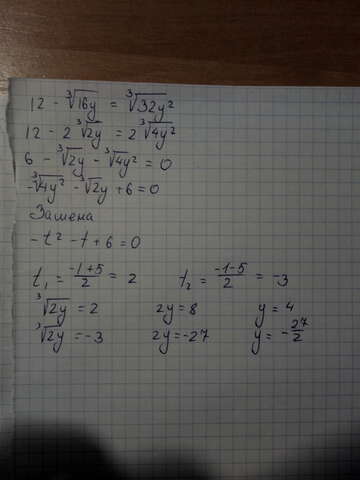 12 - ∛16y = ∛32y²
12 - 2 ∛2y = 2 ∛4y²
6 - ∛2y - ∛4y² = 0
-∛4y² - ∛2y + 6 = 0
Замена
-t² - t + 6 = 0
t₁ = (-1+5)/2 = 2 t₂ = (-1-5)/2 = -3
∛2y = 2 2y = 8 y = 4
∛2y = -3 2y = -27 y = -27/2